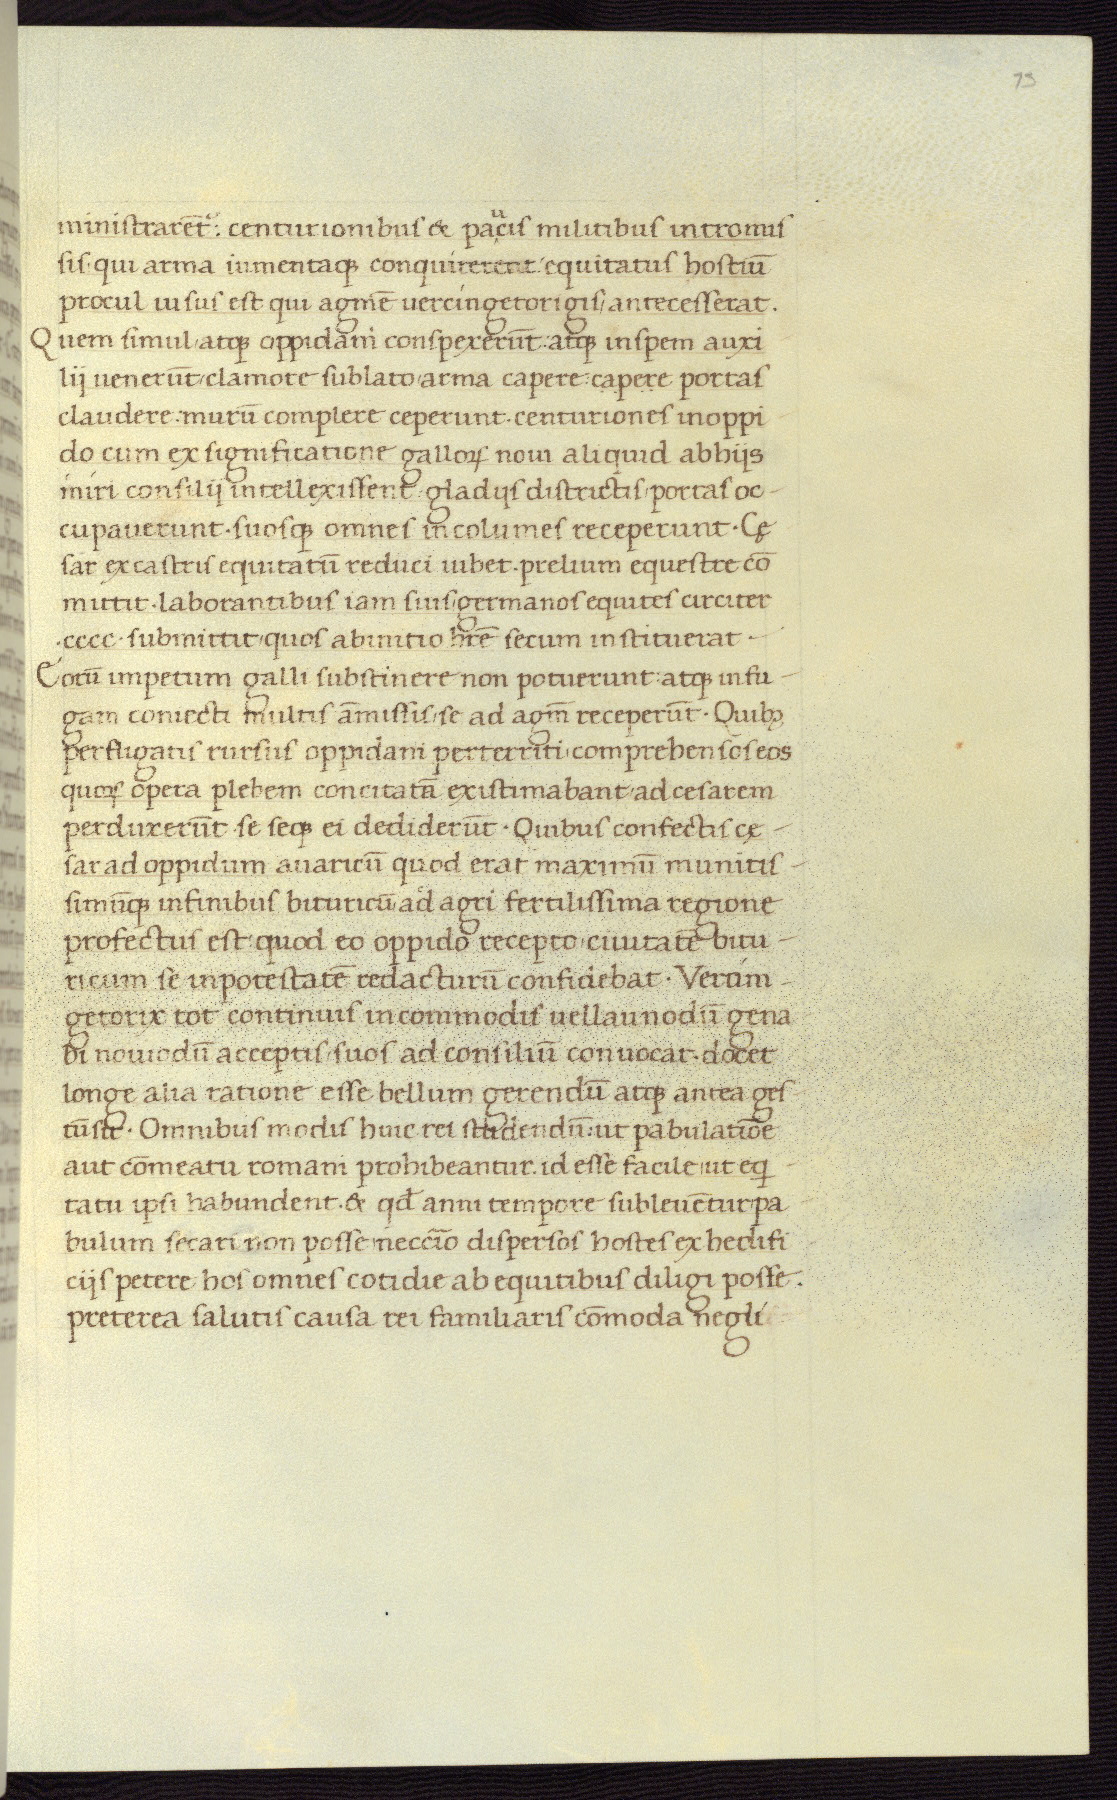 73
ministrarēt᷑: centurionibus & paucis militibus intromis
sis· qui arma iumentaqꝫ conquirerent: equitatus hostiū
procul uisus est qui agmē uercingetorigis antecesserat.
Quem simul atqꝫ oppidani conspexerūt: atqꝫ inspem auxi
lij uenerūt clamore sublato arma capere: capere portas
claudere: murū complere ceperunt· centuriones inoppi
do cum ex significatione gallorꝝ noui aliquid abhijs
iniri consilij intellexissent: gladijs districtis portas oc-
cupauerunt· suosqꝫ omnes incolumes receperunt· Cę
sar ex castris equitatū reduci iubet· prelium equestre cō
mittit· laborantibus iam suis germanos equites circiter
·cccc· submittit quos abinitio hr̄e secum instituerat·-
Eorū impetum galli substinere non potuerunt: atqꝫ infu-
gam coniecti multis āmissis se ad agm̄ receperūt· Quibꝫ
perfligatis rursus oppidani perterriti comprehensos eos
quorꝝ opera plebem concitatā existimabant ad cesarem
perduxerūt· se seqꝫ ei dediderūt· Quibus confectis cę-
sar ad oppidum auaricū quod erat maximū munitis-
simūqꝫ infinibus bituricū ad agri fertilissima regione
profectus est: quod eo oppido recepto ciuitatē bitu-
ricum se inpotestatē redacturū confidebat· Vercin-
getorix tot continuis incommodis uellaunodū gena
bi nouiodū acceptis suos ad consiliū conuocat· docet
longe alia ratione esse bellum gerendū atqꝫ antea ges
tūsit· Omnibus modis huic rei studendū: ut pabulatiōe
aut cōmeatu romani prohibeantur. id esse facile ut eqi-
tatu ipsi habundent· & qđ anni tempore subleuētur pa
bulum secari non posse neccīo dispersos hostes ex hedifi
cijs petere hos omnes cotidie ab equitibus diligi posse.
preterea salutis causa rei familiaris cōmoda negli